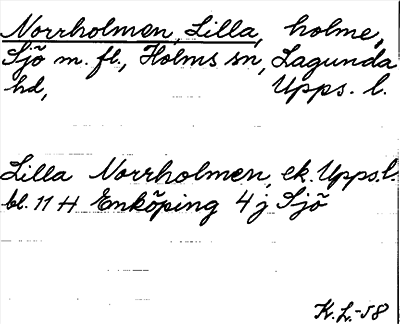 Norrholmen, Lilla, holme,
Sjö m. fl., Holms sn, Lagunda
hd, Upps. l.
Lilla Norrholmen, ek. Upps.l.
bl. 11 H Enköping 4 j Sjö
K.L.-58